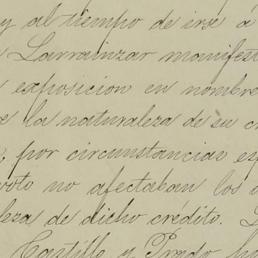 y al tiempo de irse á
Larrainzar manifest
exposicion en nombre
la naturaleza de su c
, por circunstancias esp
voto no afectaban los d
leza de dicho crédito.
Castillo y Prado